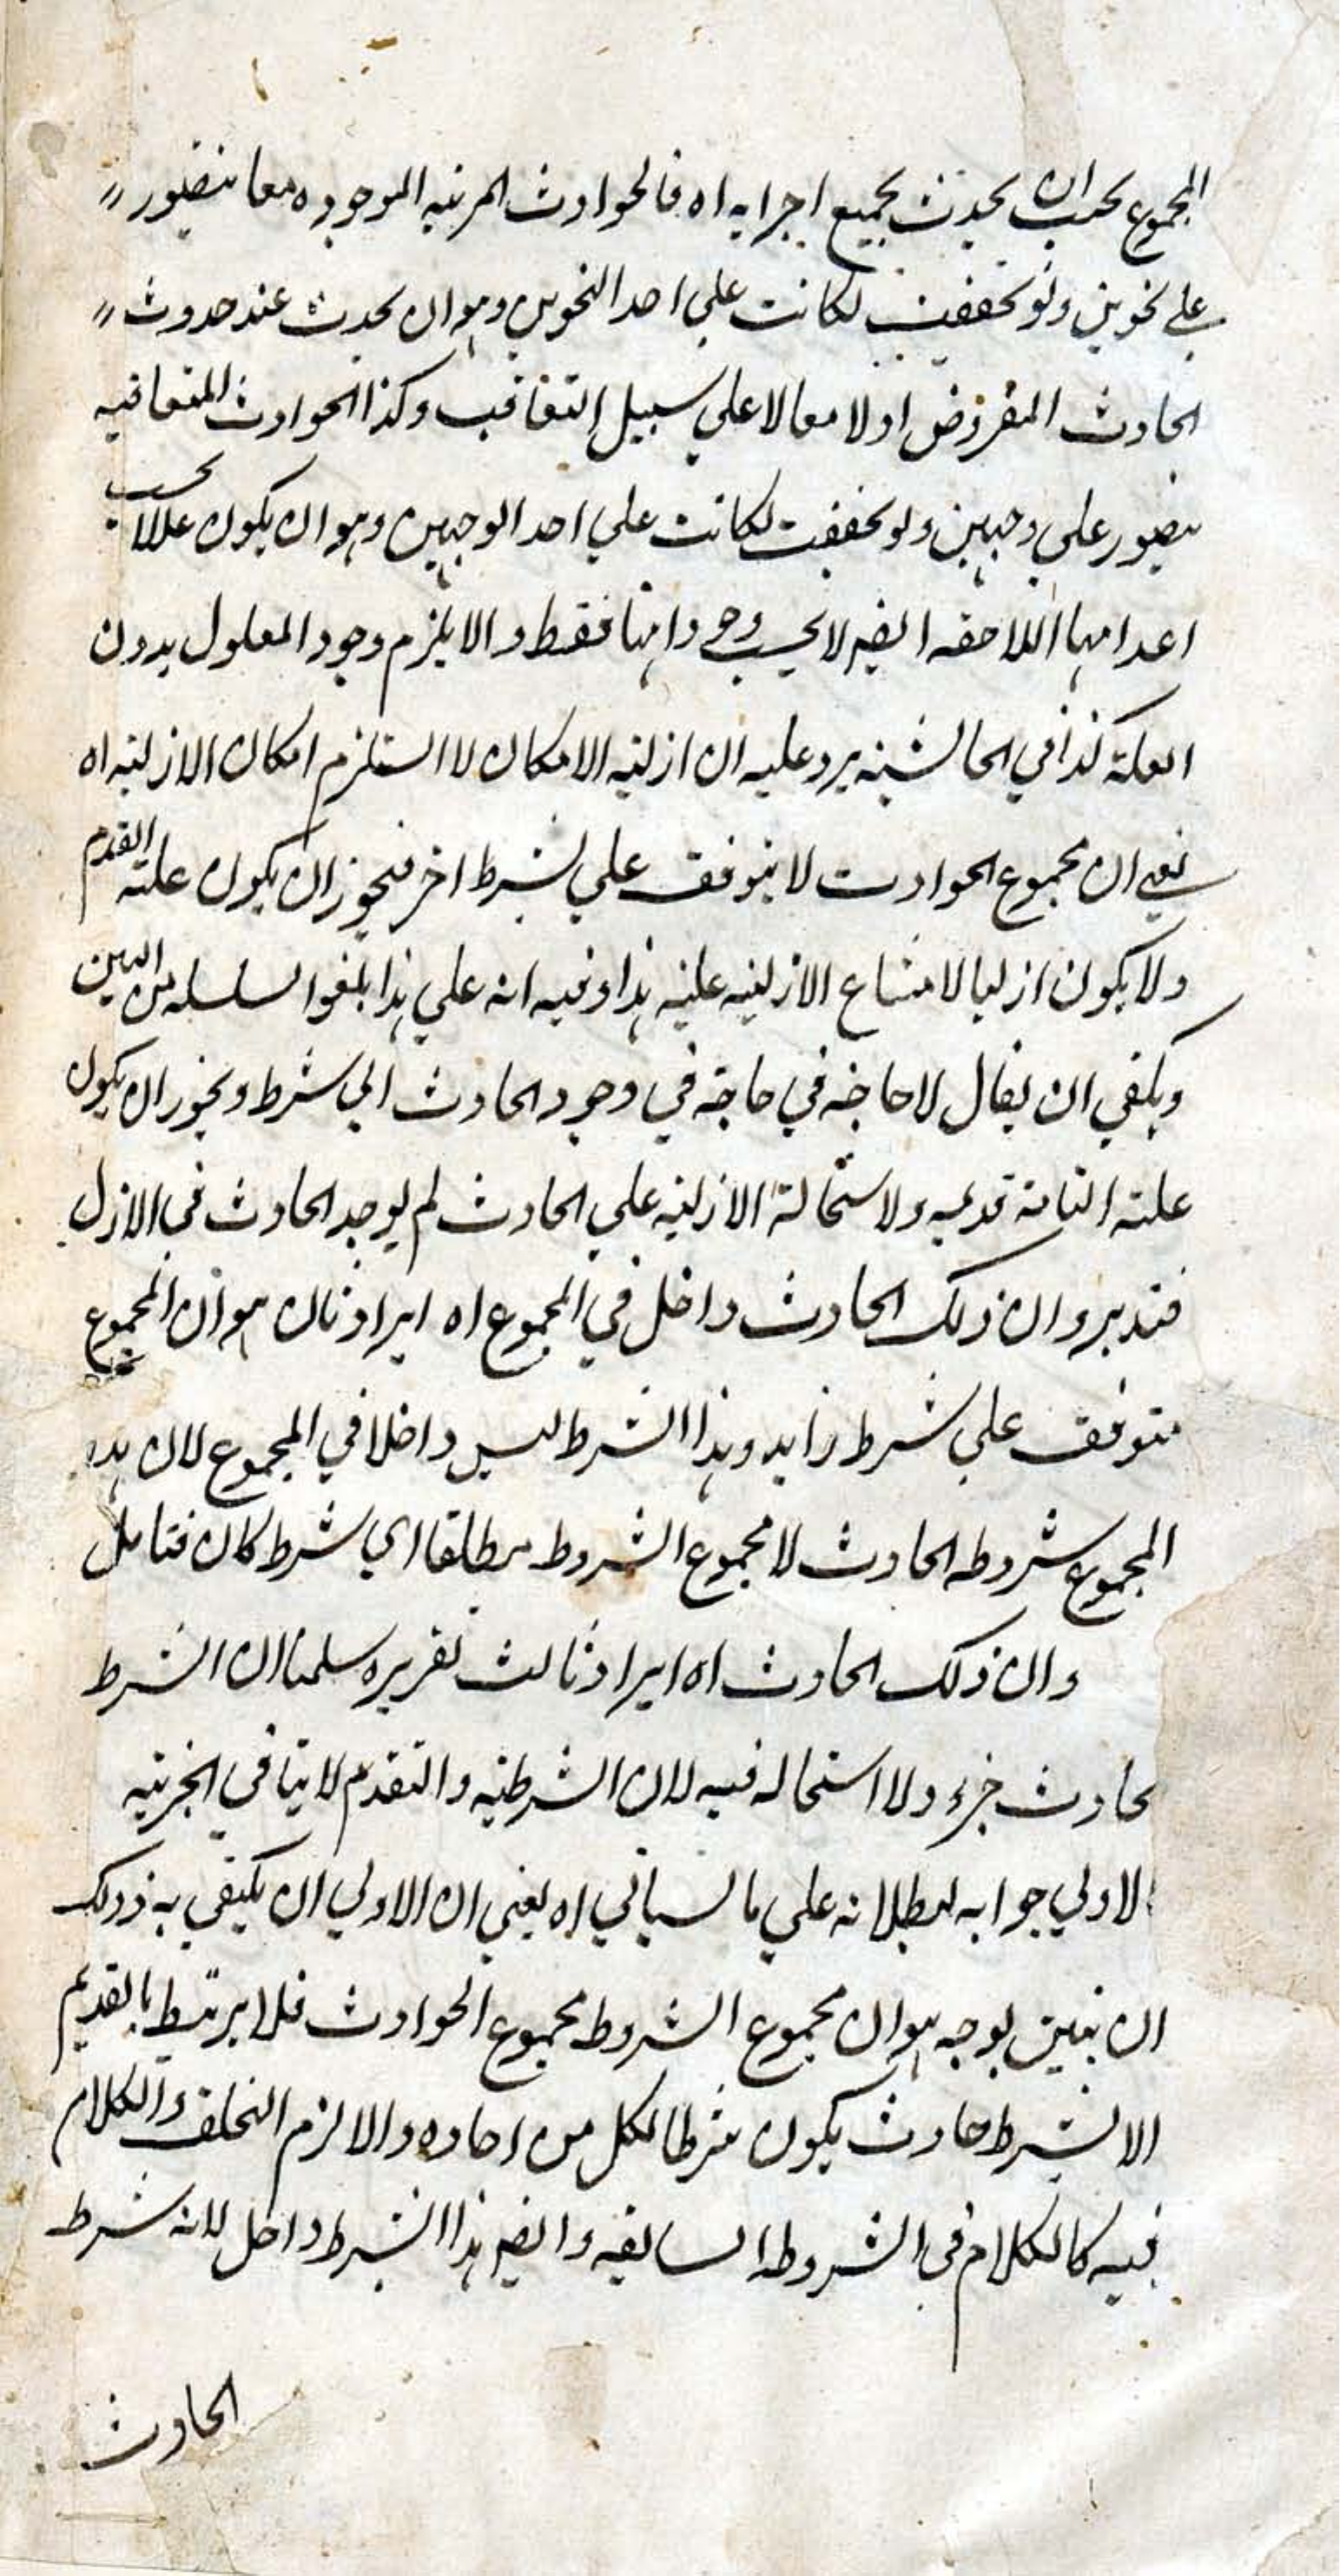 المجموع يجب ان يحدث بجميع اجزايه اه فالحوادث المرتبه الموجوده معا يتصور
علي نحوين ولو تحققت لكانت علي احد النحوين وهو ان يحدث عند حدوث
الحادث المفروض اولا معا لا علي سبيل التعاقب وكذا الحوادث المتعاقبه
يتصور علي وجهين ولو تحققت لكانت علي احد الوجهين وهو ان يكون عللا بحسب
اعدامها اللاحقه ايضا لا بحسب وجوداتها فقط والا يلزم وجود المعلول بدون
العلة كذا في الحاشيه يرد عليه ان ازلية الامكان لا استلزم امكان الازليه اه
يعني ان مجموع الحوادث لا يتوقف علي شرط اخر فيجوز ان يكون علته القدم
ولا يكون ازليا لامتناع الازليه عليه هذا وفيه انه علي هذا يلغوا السلسله من البين
ويكفي ان يقال لا حاجة في حاجة في وجود الحادث الي شرط ويجوز ان يكون
علته التامة قديمه ولاستحالة الازليه علي الحادث لم يوجد الحادث في الازل
فتدبر وان ذلك الحادث داخل في المجموع اه ايراد ثان هو ان المجموع
متوقف علي شرط زايد وهذا الشرط ليس داخلا في المجموع لان هذه
المجموع شروطه الحادث لا مجموع الشروط مطلقا اي شرط كان فتامل
وان ذلك الحادث اه ايراد ثالث تقريره سلمنا ان الشرط
حادث جزء ولا استحاله فيه لان الشرطيه والتقدم لا ينافي الجزئيه
الاولي جوابه لبطلانه علي ما سياتي اه يعني ان الاولي ان يكتفي به وذلك
ان يبين بوجه هو ان مجموع الشروط مجموع الحوادث فلا يرتبط بالقديم
الا بشرط حادث يكون شرطا لكل من احاده والا لزم التخلف والكلام
فيه كالكلام في الشروط السابقه وايضا هذا الشرط داخل لانه شرط
الحادث